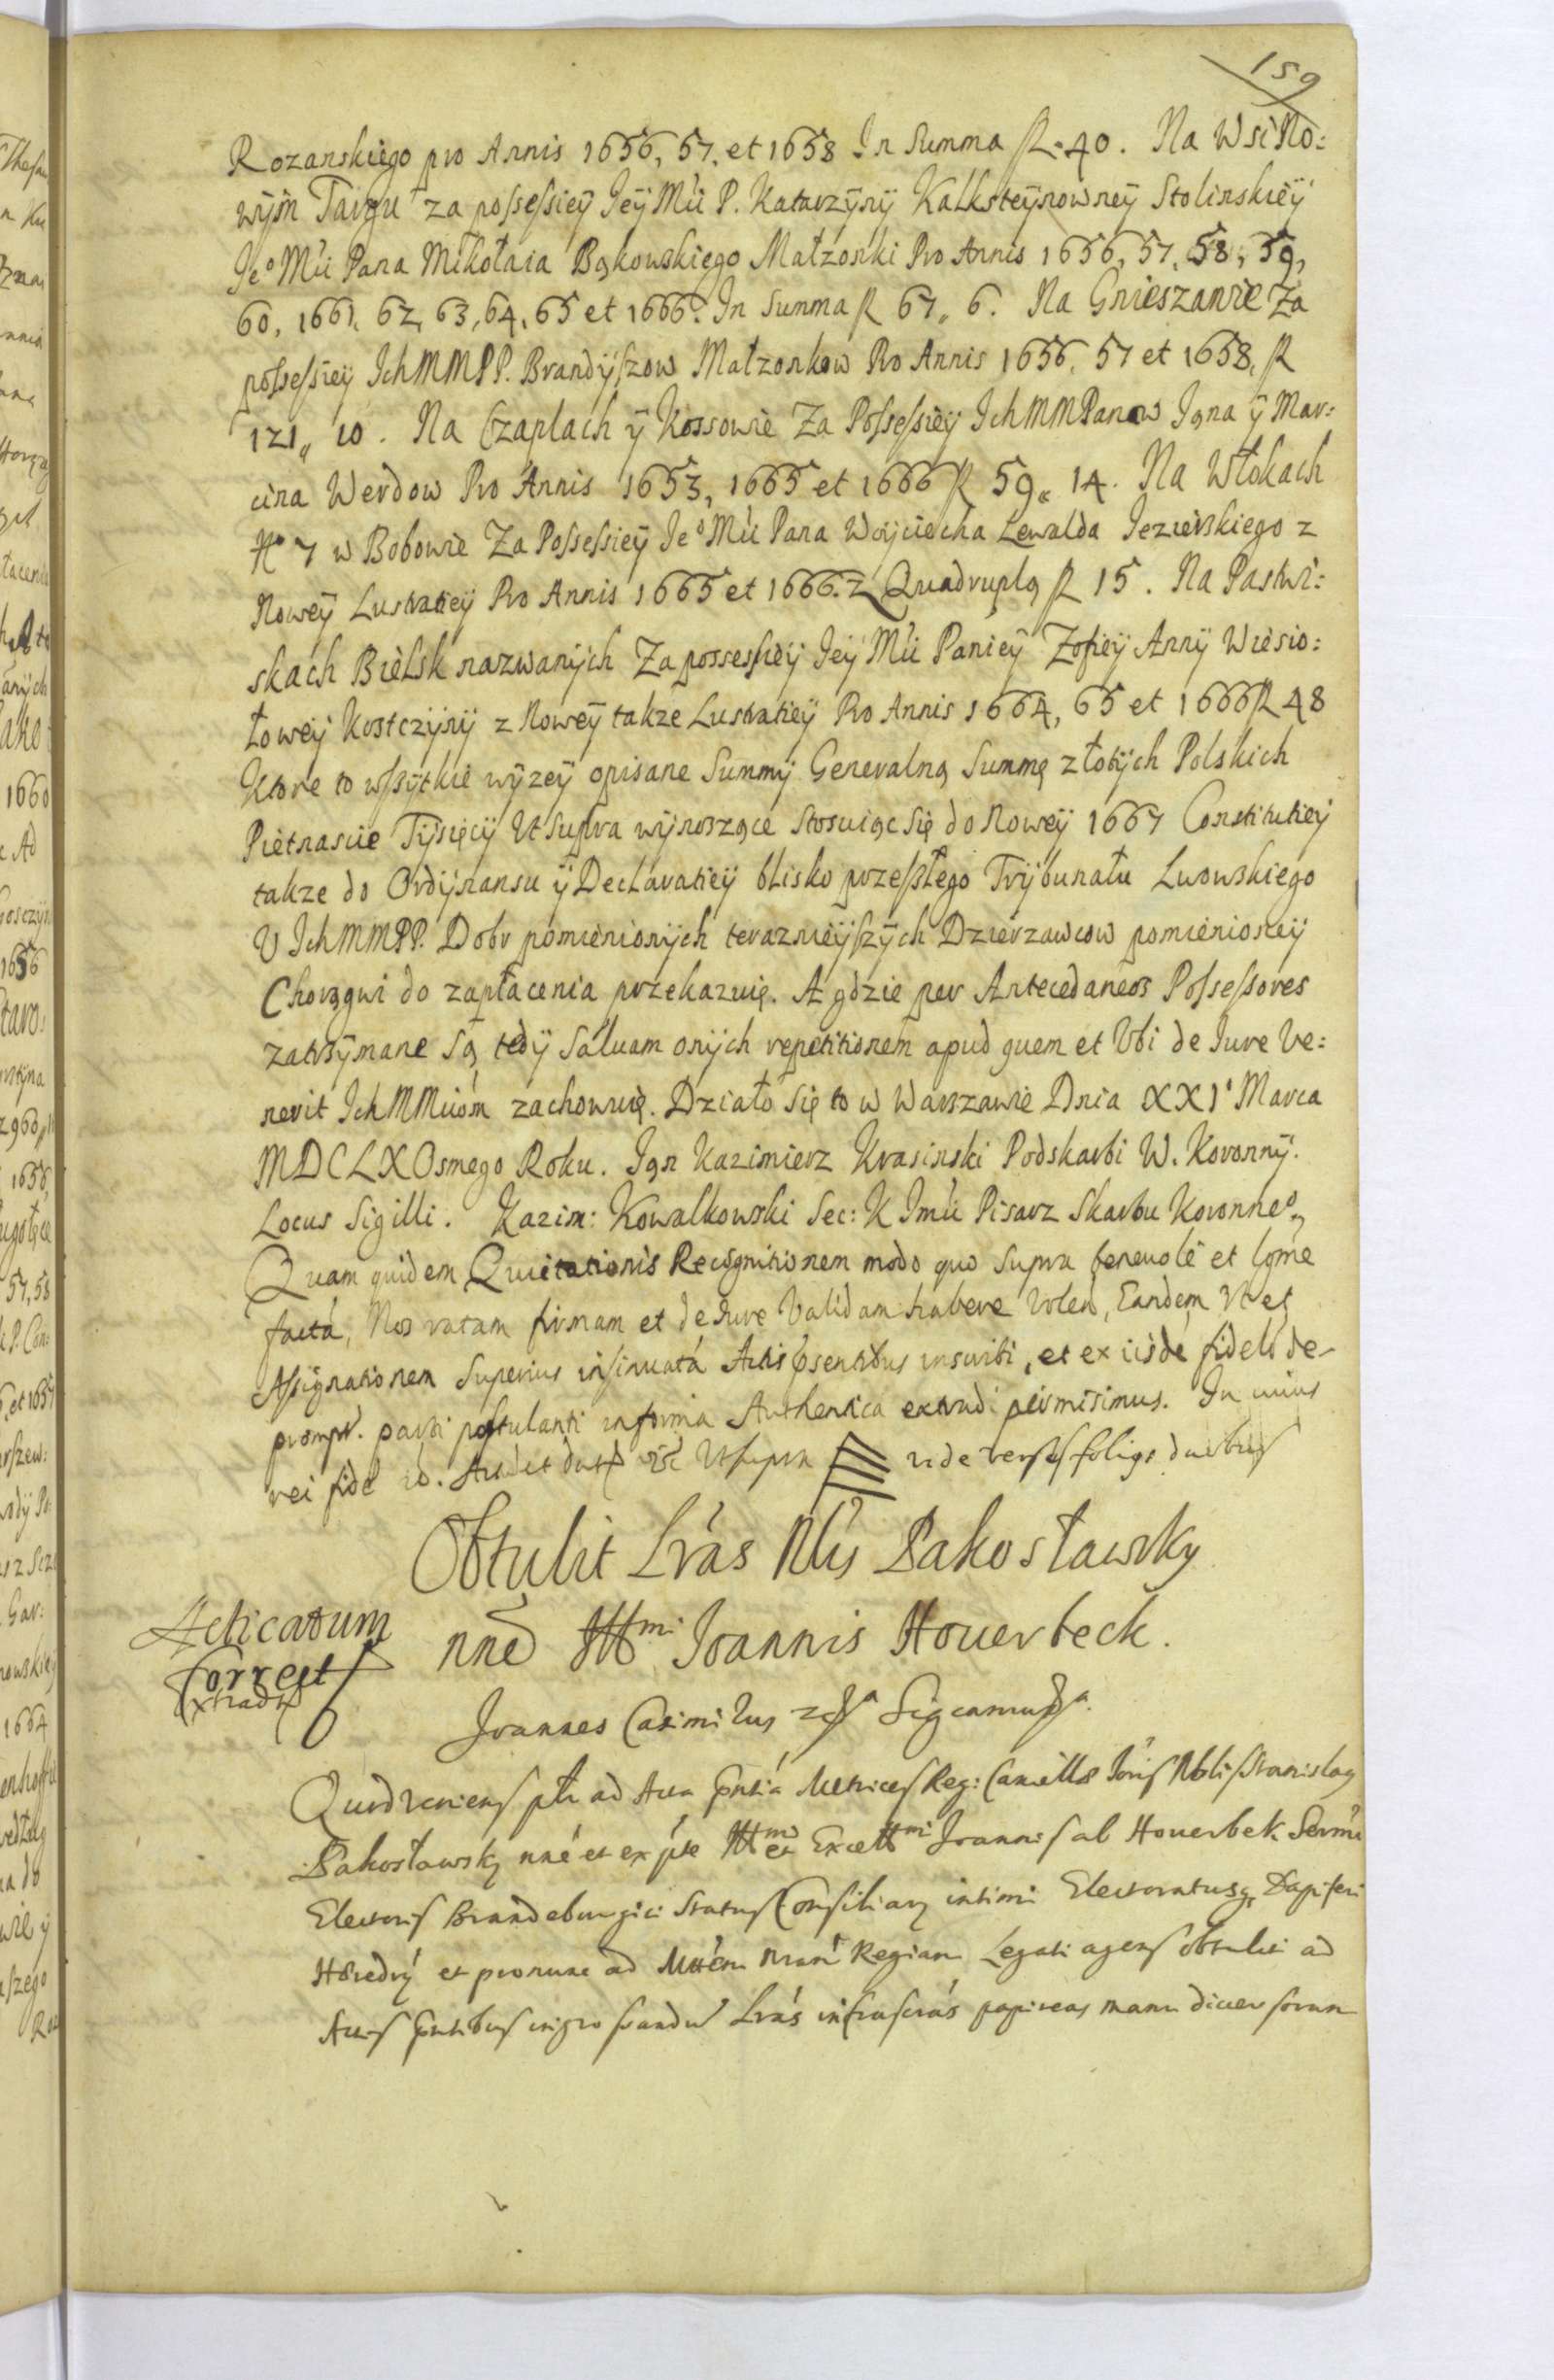 159
Rozanskiego pro Annis 1656, 57, et 1658 In Summa fl. 40. Na Wsi No:
wÿm Targu za possessieÿ JeÿMći P. Katarzÿnÿ Kalksteÿnowneÿ Stolinskieÿ
Je⁰Mći Pana Mikołaia Bąkowskiego Małzonki Pro Annis 1656, 57, 58, 59,
60, 1661, 62, 63, 64, 65 et 1666. In Summa fl 67„ 6. Na Gnieszanie Za
possessieÿ IchMMPP. Brandÿszow Małzonkow Pro Annis 1656, 57 et 1658, fl
121„ 10. Na Czaplach ÿ Kossowie Za Possessieÿ IchMMPanow Jąna ÿ Mar:
cina Werdow Pro Annis 1653, 1665 et 1666 fl 59„ 14. Na Włokach
N⁰ 7 w Bobowie Za Possessieÿ Je⁰Mći Pana Woÿciecha Lewalda Jezierskiego z
Noweÿ Lustratieÿ Pro Annis 1665 et 1666. z Quadruplą fl 15. Na Pastwi:
skach Bielsk nazwanÿch Za possessieÿ JeÿMći Panieÿ Zofieÿ Annÿ Wiesio:
łoweÿ Kostczÿnÿ z Noweÿ takze Lustratieÿ Pro Annis 1664, 65 et 1666 fl 48
Ktore to wssÿtkie wÿzeÿ opisane Summÿ Generalną Summę złotÿch Polskich
Piętnascie Tÿsięcÿ Ut Supra wÿnoszące stosuiąc się do Noweÿ 1667 Constitutieÿ
takze do Ordÿnansu ÿ Declaratieÿ blisko przeszłego Trÿbunału Lwowskiego
U IchMMPP. Dobr pomienionÿch teraznieÿszÿch Dzierzawcow pomienioneÿ
Chorągwi do zapłacenia przekazuię. A gdzie per Antecedaneos Possessores
zatrzÿmane są, tedÿ saluam onÿch repetitionem apud quem et Ubi de Iure Ve:
nerit IchMMciom zachowuię. Działo się to w Warszawie Dnia XXI Marca
MDCLXOsmego Roku. Jąn Kazimierz Krasinski Podskarbi W. Koronnÿ.
Locus Sigilli. Kazim: Kowalkowski Sec: K Jmći Pisarz Skarbu Koronne⁰„
Quam quidem Quietationis Recognitionem modo quo supra beneuolè et lgme
factá, Nos ratam firmam et de Iure Validam habere Volen, Eandem Ut et
Assignationem superius insinuatá Actis psentibus inscribi, et ex iisdé fideli de-
prompt. parti postulanti in forma Authentica extradi permisimus. In cuius
rei fidé Ut supra vide versus folijs duobus
Obtulit Lrás Nlis Pakosławsky
nne Illmi Joannis Houerbeck.
Acticatum
Correct
Extradt
Joannes Casimirus Significamus
Quod veniens ad Acta pntia Metrices Reg: Cancellae Nblis Stanislaus
Pakosławsky nné et ex pte Illmi et Excellmi Joannis ab Houerbek Sermi
Electoris Brandeburgici Status Consiliarij intimi Electoratusq; Dapiferi
Hóredrÿ et pronunc ad Mttem nram Regiam Legati agens obtulit ad
Actis pntibus ingrossandum Lrás infrascrás papireas manu diuersorum